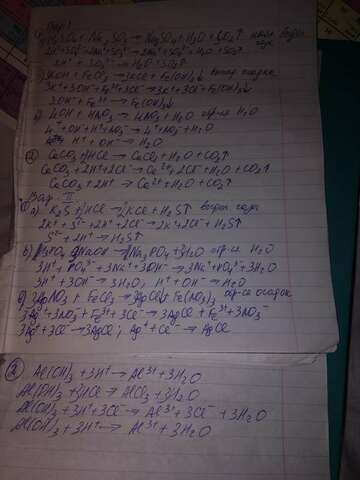 Вар I
① а) H2SO4 + Na2SO3 → Na2SO4 + H2O + SO2↑ выд
2H⁺ + SO4²⁻ + 2Na⁺ + SO3²⁻ → 2Na⁺ + SO4²⁻ + H2O + SO2↑
2H⁺ + SO3²⁻ → H2O + SO2↑
3KOH + FeCl3 → 3KCl + Fe(OH)3↓ осадка
3K⁺ + 3OH⁻ + Fe³⁺ + 3Cl⁻ → 3K⁺ + 3Cl⁻ + Fe(OH)3↓
3OH⁻ + Fe³⁺ → Fe(OH)3↓
LiOH + HNO3 → LiNO3 + H2O обр-е H2O
Li⁺ + OH⁻ + H⁺ + NO3⁻ → Li⁺ + NO3⁻ + H2O
H⁺ + OH⁻ → H2O
② CaCO3 + 2HCl → CaCl2 + H2O + CO2↑
CaCO3 + 2H⁺ + 2Cl⁻ → Ca²⁺ + 2Cl⁻ + H2O + CO2↑
CaCO3 + 2H⁺ → Ca²⁺ + H2O + CO2↑
Вар. II
① а) K2S + 2HCl → 2KCl + H2S↑ газа
2K⁺ + S²⁻ + 2H⁺ + 2Cl⁻ → 2K⁺ + 2Cl⁻ + H2S↑
S²⁻ + 2H⁺ → H2S↑
б) H3PO4 + 3NaOH → Na3PO4 + 3H2O обр-е H2O
3H⁺ + PO4³⁻ + 3Na⁺ + 3OH⁻ → 3Na⁺ + PO4³⁻ + 3H2O
3H⁺ + 3OH⁻ → 3H2O; H⁺ + OH⁻ → H2O
в) 3AgNO3 + FeCl3 → 3AgCl↓ + Fe(NO3)3 обр-е осадок
3Ag⁺ + 3NO3⁻ + Fe³⁺ + 3Cl⁻ → 3AgCl + Fe³⁺ + 3NO3⁻
3Ag⁺ + 3Cl⁻ → 3AgCl; Ag⁺ + Cl⁻ → AgCl
② Al(OH)3 + 3H⁺ → Al³⁺ + 3H2O
Al(OH)3 + 3HCl → AlCl3 + 3H2O
Al(OH)3 + 3H⁺ + 3Cl⁻ → Al³⁺ + 3Cl⁻ + 3H2O
Al(OH)3 + 3H⁺ → Al³⁺ + 3H2O